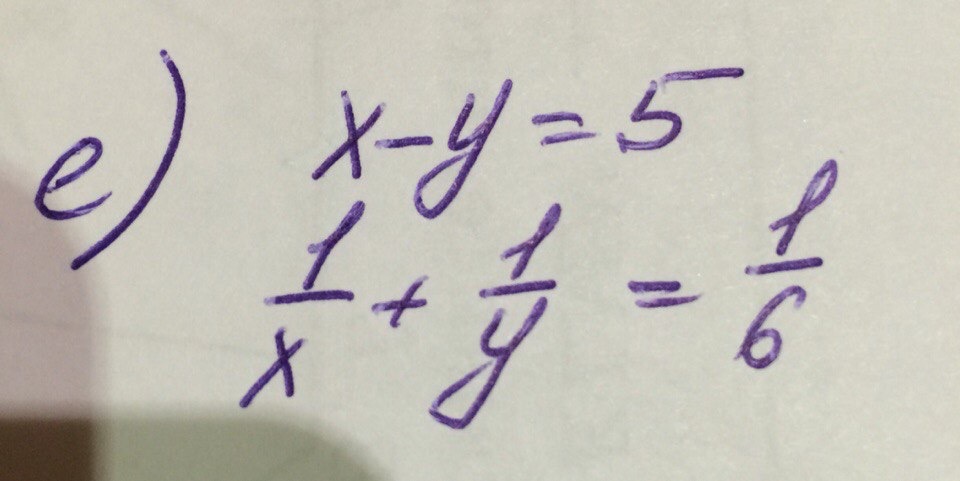 e) x-y=5
1/x + 1/y = 1/6